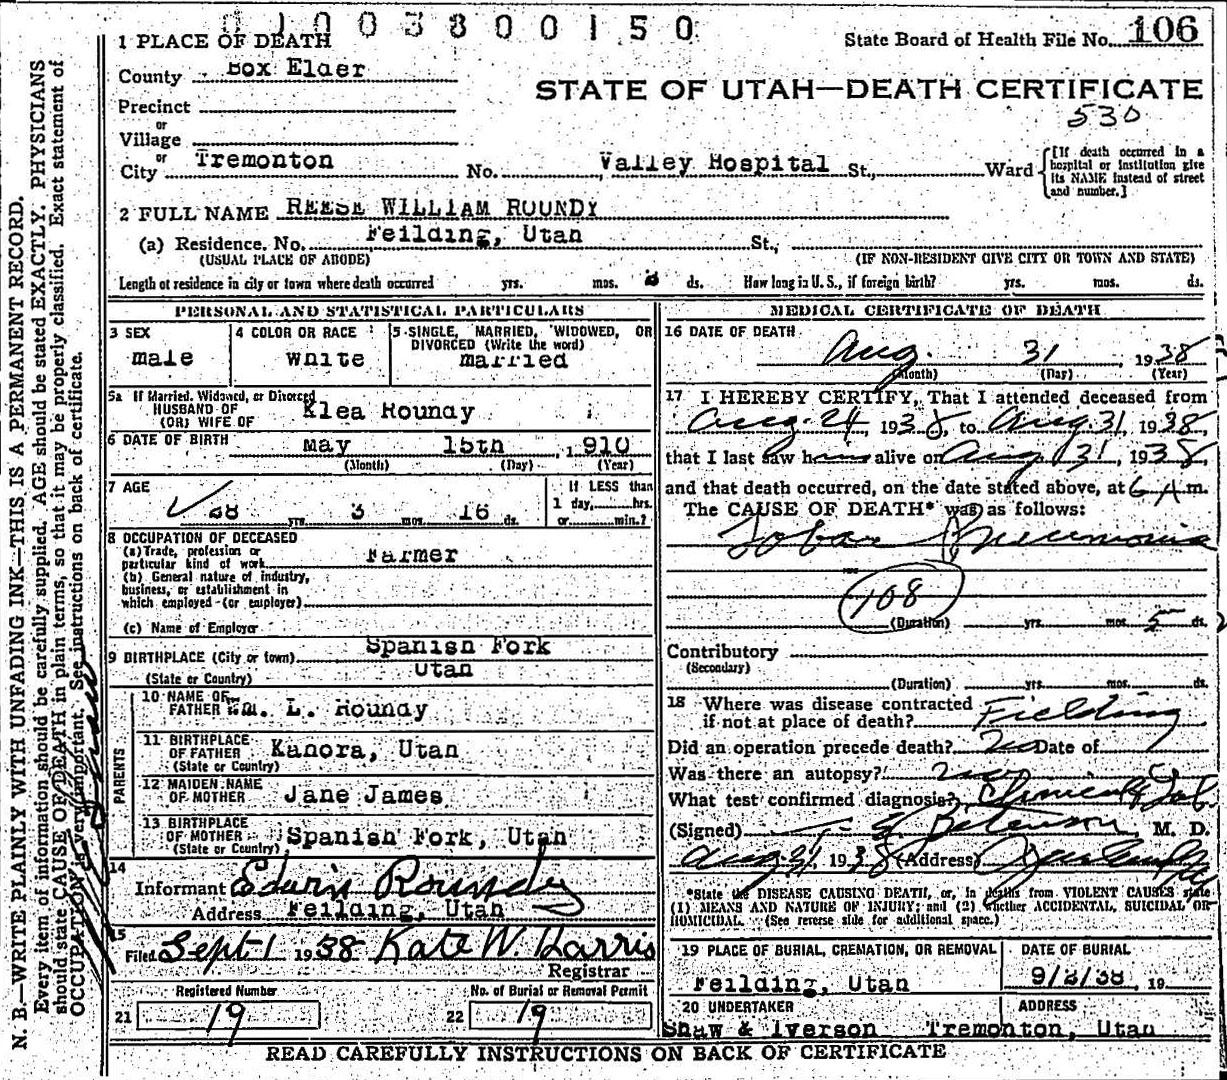 0100380 0150
1 PLACE OF DEATH
State Board of Health File No. 106
County Box Elder
STATE OF UTAH—DEATH CERTIFICATE
530
Precinct
or
Village
or
City Tremonton No. Valley Hospital St., Ward
[If death occurred in a hospital or institution give its NAME instead of street and number.]
2 FULL NAME REESE WILLIAM ROUNDY
(a) Residence, No. Feilding, Utah St.,
(USUAL PLACE OF ABODE) (IF NON-RESIDENT GIVE CITY OR TOWN AND STATE)
Length of residence in city or town where death occurred yrs. mos. ds. How long in U. S., if foreign birth? yrs. mos. ds.
PERSONAL AND STATISTICAL PARTICULARS
3 SEX
male
4 COLOR OR RACE
White
5 SINGLE, MARRIED, WIDOWED, OR
DIVORCED (Write the word)
married
5a If Married, Widowed, or Divorced
HUSBAND OF
(OR) WIFE OF Klea Roundy
6 DATE OF BIRTH May 15th, 1910
(Month) (Day) (Year)
7 AGE
28 yrs. 3 mos. 16 ds.
If LESS than
1 day, hrs.
or min.?
8 OCCUPATION OF DECEASED
(a) Trade, profession or
particular kind of work Farmer
(b) General nature of industry,
business, or establishment in
which employed (or employer)
(c) Name of Employer
9 BIRTHPLACE (City or town) Spanish Fork
(State or Country) Utah
PARENTS
10 NAME OF
FATHER Wm. L. Roundy
11 BIRTHPLACE
OF FATHER Kanora, Utah
(State or Country)
12 MAIDEN NAME
OF MOTHER Jane James
13 BIRTHPLACE
OF MOTHER Spanish Fork, Utah
(State or Country)
14
Informant Edwin Roundy
Address Feilding, Utah
15
Filed Sept 1 1938 Kate W. Harris
Registrar
Registered Number
21 19
No. of Burial or Removal Permit
22 19
MEDICAL CERTIFICATE OF DEATH
16 DATE OF DEATH
Aug. 31 1938
(Month) (Day) (Year)
17 I HEREBY CERTIFY, That I attended deceased from
Aug. 24, 1938, to Aug. 31, 1938,
that I last saw him alive on Aug 31, 1938,
and that death occurred, on the date stated above, at 6 A.m.
The CAUSE OF DEATH* was as follows:
Lobar Pneumonia
108
(Duration) yrs. mos. 5 ds.
Contributory
(Secondary)
(Duration) yrs. mos. ds.
18 Where was disease contracted
if not at place of death? Fielding
Did an operation precede death? no Date of
Was there an autopsy? no
What test confirmed diagnosis? Clinical & Lab.
(Signed) Peterson, M. D.
Aug 31, 1938 (Address)
*State the DISEASE CAUSING DEATH, or, in deaths from VIOLENT CAUSES state
(1) MEANS AND NATURE OF INJURY; and (2) whether ACCIDENTAL, SUICIDAL OR
HOMICIDAL. (See reverse side for additional space.)
19 PLACE OF BURIAL, CREMATION, OR REMOVAL
Feilding, Utah
DATE OF BURIAL
9/2/38, 19
20 UNDERTAKER
Shaw & Iverson
ADDRESS
Tremonton, Utah
READ CAREFULLY INSTRUCTIONS ON BACK OF CERTIFICATE
N. B.—WRITE PLAINLY WITH UNFADING INK—THIS IS A PERMANENT RECORD.
Every item of information should be carefully supplied. AGE should be stated EXACTLY. PHYSICIANS
should state CAUSE OF DEATH in plain terms, so that it may be properly classified. Exact statement of
OCCUPATION is very important. See instructions on back of certificate.